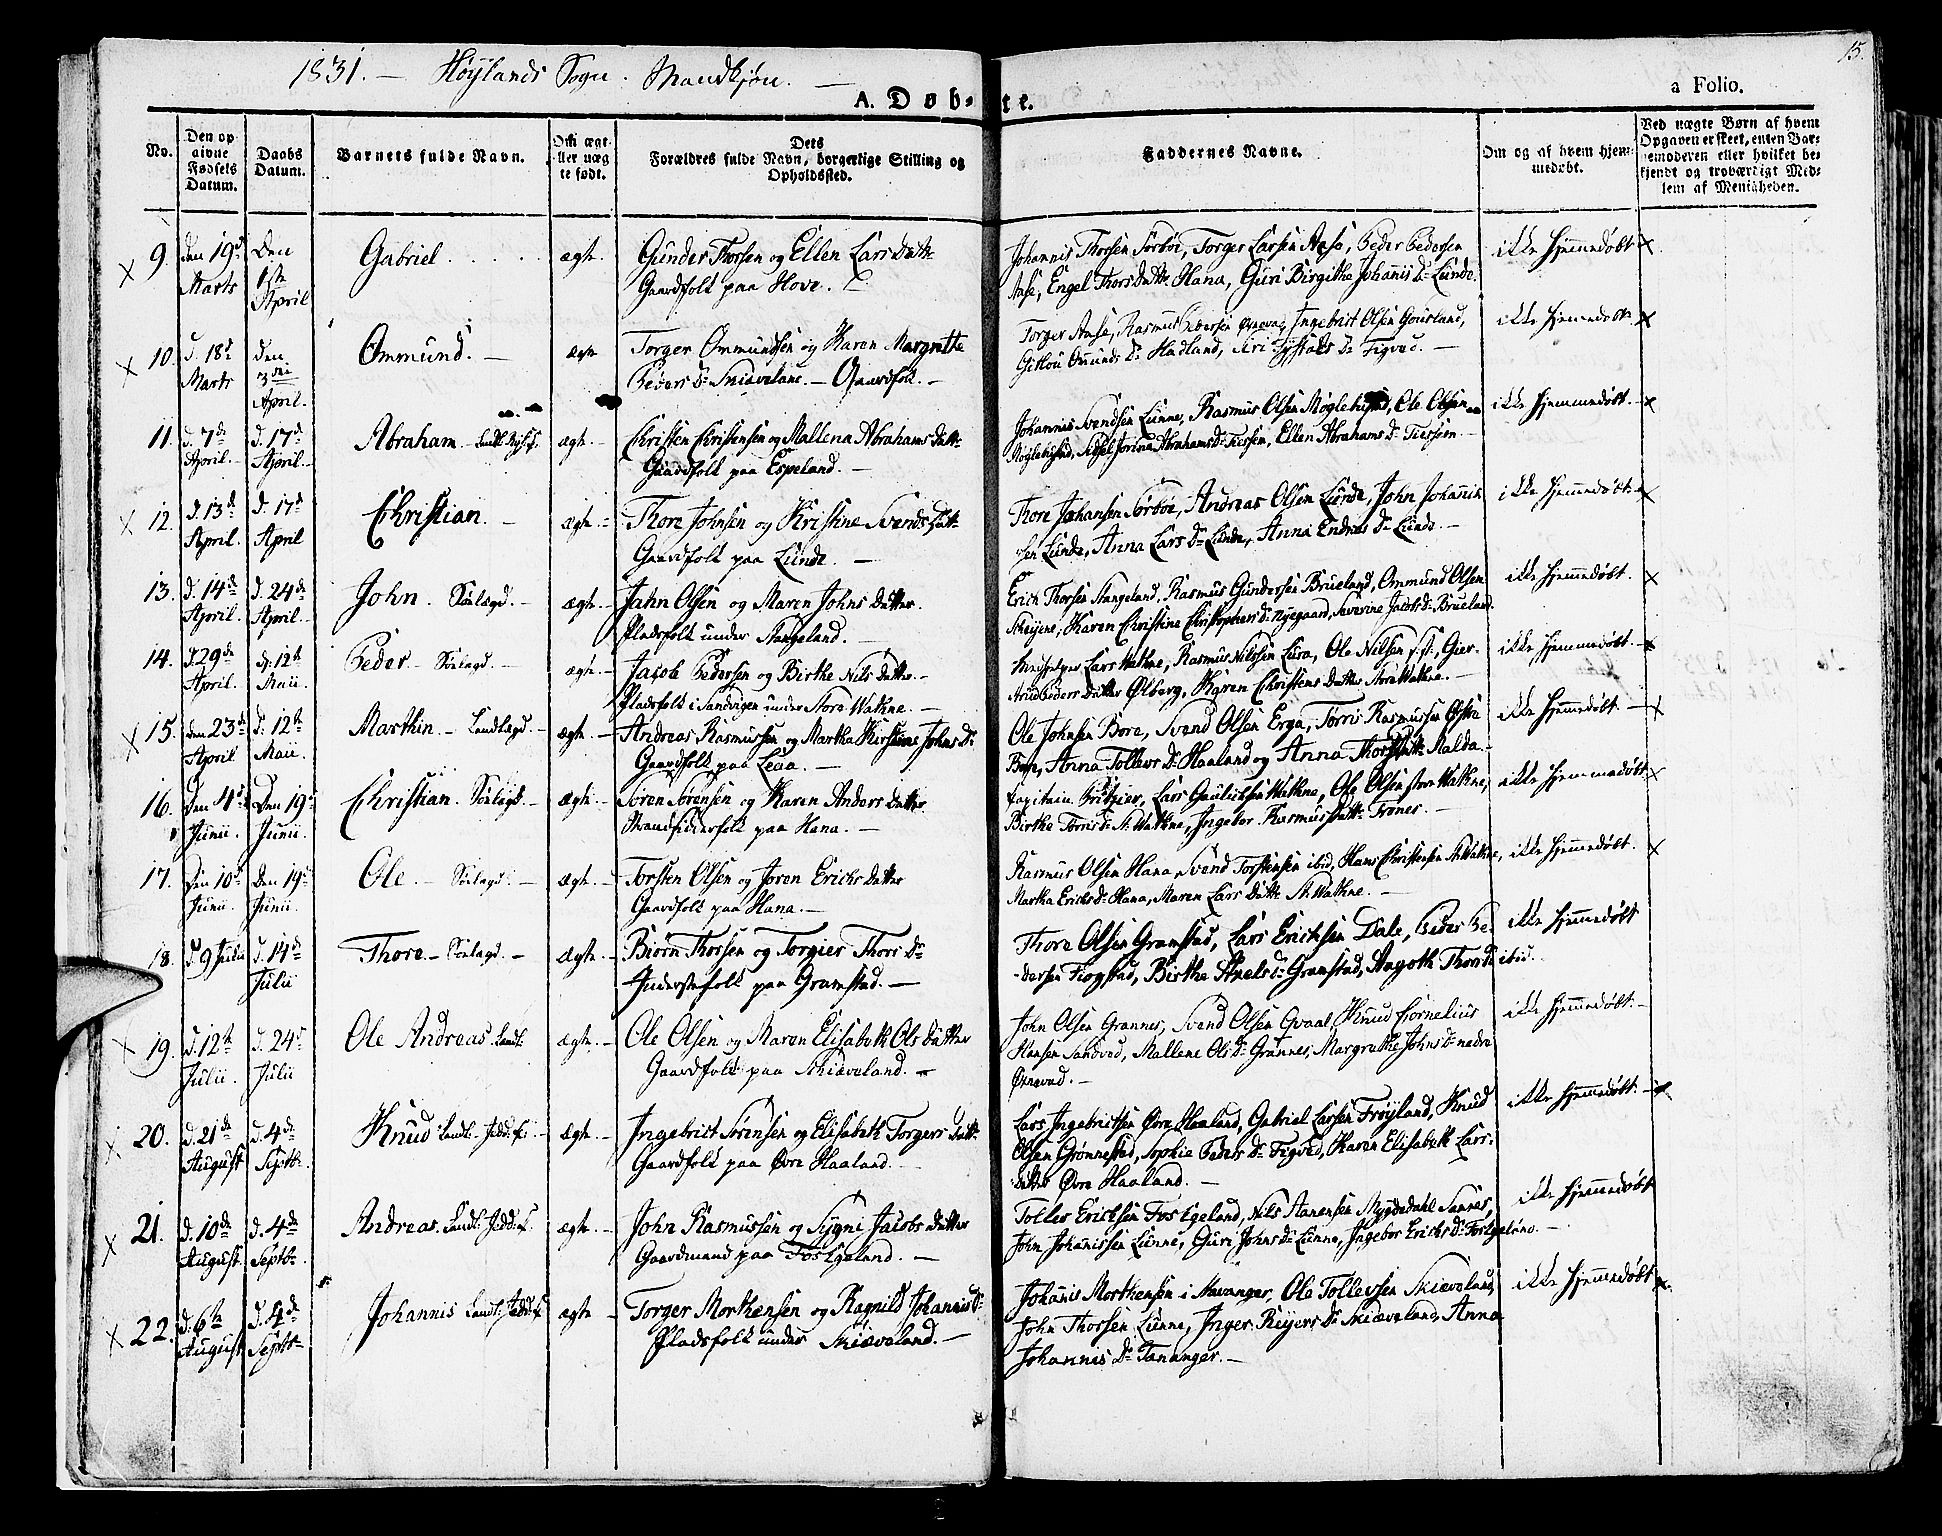 15.
1831. — Høylands Sogn. Mandkjøn. —
A. Døb-te.
a Folio.
No.
Den op-
givne
Fødsels
Datum.
Daabs
Datum.
Barnets fulde Navn.
Om ægt-
ller uæg
te født.
Dets
Forældres fulde Navn, borgerlige Stilling og
Opholdssted.
Faddernes Navne.
Om og af hvem hjem-
medøbt.
Ved uægte Børn af hvem
Opgaven er skeet, enten Bar-
nemoderen eller hvilket be-
kjendt og troværdigt Med-
lem af Menigheden.
× 9. den 19d Marts
Den 1ste April
Gabriel . . . . .
ægte.
Gunder Thorsen og Ellen Lars Datt.
Gaardfolk paa Hove.
Johannis Thorsen Sørbøe, Torger Larsen Aase, Peder Pedersen
Aase, Engel Thors Datt. Hana, Guri Birgithe Johanis Dr Lunde.
ikke hjemmedøbt ×
× 10. d. 18de Marts
den 3die April.
Ommund. —
ægte
Torger Ommundsen og Karen Margrethe
Peders Dr Skiævelane. — Gaardfolk. —
Torger Aase, Rasmus Pedersen Ørnevaj, Ingebrit Olsen Gousland,
Hadland, Siri
ikke hjemmedøbt ×
11. d. 7de April.
d. 17de April.
Abraham
ægte. —
Christen Christensen og Mallena Abrahams Datt.
Gaardfolk paa Espeland. —
Johannis Svendsen Lunne, Rasmus Olsen Moglebustad, Ole Olsen
Moglebustad, Sidsel Jorina Abrahams Dr Tiessem, Ellen Abrahams Dr Tiessem
ikke hjemmedøbt. ×
× 12. d. 13de April.
d. 17de April
Christian. —
ægte. —
Thore Johnsen og Kristine Svends Datt.
Gaardfolk paa Lunde. —
Thore Johansen Sørbøe, Andreas Olsen Lunde, John Johannis
sen Lunde, Anna Lars Dr Lunde, Anna Endres Dr Lunde. —
ikke hjemmedøbt. ×
13. d. 14de April.
d. 24de April.
John. Sønlagd. —
ægte. —
Jahn Olsen og Maren Johns Datter.
Pladsfolk under Stangeland. —
Erich Thorsen Stangeland, Rasmus Gundersen Brueland, Ommund Olsen
Skeiene, Karen Christine Christophers Dr Nyegaard, Severine Jacobs Dr Brueland.
ikke hjemmedøbt. ×
14. d. 29de April.
d. 12te Maii.
Peder — Sønlagd. —
ægte. —
Jacob Pedersen og Birthe Nils Datter. —
Pladsfolk i Sandvigen under Store Watne. —
Medhjelper Lars Watne, Rasmus Nilssen Lura, Ole Nilsen Gier-
Peders Datter Ølberg, Karen Christens Datter Store Watne. —
ikke hjemmedøbt. ×
× 15. den 23de April
d. 12te Maii.
Marthin. — Landlagd. —
ægte. —
Andreas Rasmussen og Martha Kirstine Johns Dr
Gaardfolk paa Leaa. —
Ole Johnsen Bore, Svend Olsen Erga, Tørris Rasmussen Østra
Bore, Anna Tollevs Dr Haaland og Anna Thors Datt. Malda —
ikke hjemmedøbt. — ×
16. Den 4de Junii.
Den 19de Junii.
Christian. Sønlagd. —
ægte. —
Søren Sørensen og Karen Anders Datter
Strandsidderfolk paa Hana. —
Capitain Fritzner, Lars Watne, Ole Olsen store Watne,
Birthe Tørris Dr St. Watne, Ingebor Rasmus Datt. Frønes. —
ikke hjemmedøbt ×
17. Den 10de Junii.
Den 19de Junii.
Ole. — Sønlagd. —
ægte. —
Torsten Olsen og Joren Erichs Datter
Gaardfolk paa Hana. —
Rasmus Olsen Hana, Svend Torstensen ibid, Hans Christensen St. Watne,
Martha Erichs Dr Hana, Maren Lars Datt. St. Watne. —
ikke hjemmedøbt. ×
18. d. 9 Julii
d. 14de Julii
Thore. — Sønlagd. —
ægte. —
Biørn Thorsen og Torgier Thors Dr
Inderstfolk paa Gramstad. —
Thore Olsen Gramstad, Lars Ericksen Dale, Peder Pe-
dersen Fiogstad, Birthe Axels Dr Gramstad, Aagoth Thors Dr ibid.
ikke hjemmedøbt
× 19. d. 12te Julii.
d. 24de Julii
Ole Andreas. Landl.
ægte. —
Ole Olsen og Maren Elisabeth Ols Datter
Gaardfolk paa Skiæveland. —
John Olsen Grannes, Svend Olsen Gvaal, Knud Cornelius
Hansen Sandved, Mallene Ols Dr Grannes, Margrethe Johns Dr nedre
Ørnevad. —
ikke hjemmedøbt. —
× 20. d. 21de August
d. 4de Septbr.
Knud Landl.
ægte. —
Ingebrict Sørensen og Elisabeth Torgers Datt.
Gaardfolk paa Øvre Haaland. —
Lars Ingebrictsen Øvre Haaland, Gabriel Larsen Frøyland, Knud
Olsen Grønnestad, Sophie Peders Dr Figved, Karen Elisabeth Lars-
datter Øvre Haaland. —
ikke hjemmedøbt. — ×
× 21. d. 10de August.
d. 4de Septbr.
Andreas. Landl.
ægte. —
John Rasmussen og Sygni Jacobs Datter
Gaardmand paa Foss Egeland. —
Tolles Ericksen Foss Egeland, Nils Hansen Myrdedahl Sannes,
John Johannissen Lunne, Guri Johns Dr Lunne, Ingebor Erichs Dr Foss Egeland. —
ikke hjemmedøbt
× 22. d. 6te August
d. 4de Septbr.
Johannis Landl.
ægte —
Torger Morthensen og Ragnild Johannis Dr
Pladsfolk under Skiæveland. —
Johanis Morthensen i Stavanger, Ole Tollevsen Skiæveland,
John Thorsen Lunne, Inger Reijers Dr Skiæveland, Anna
Johannis Dr Tananger. —
ikke hjemmedøbt ×